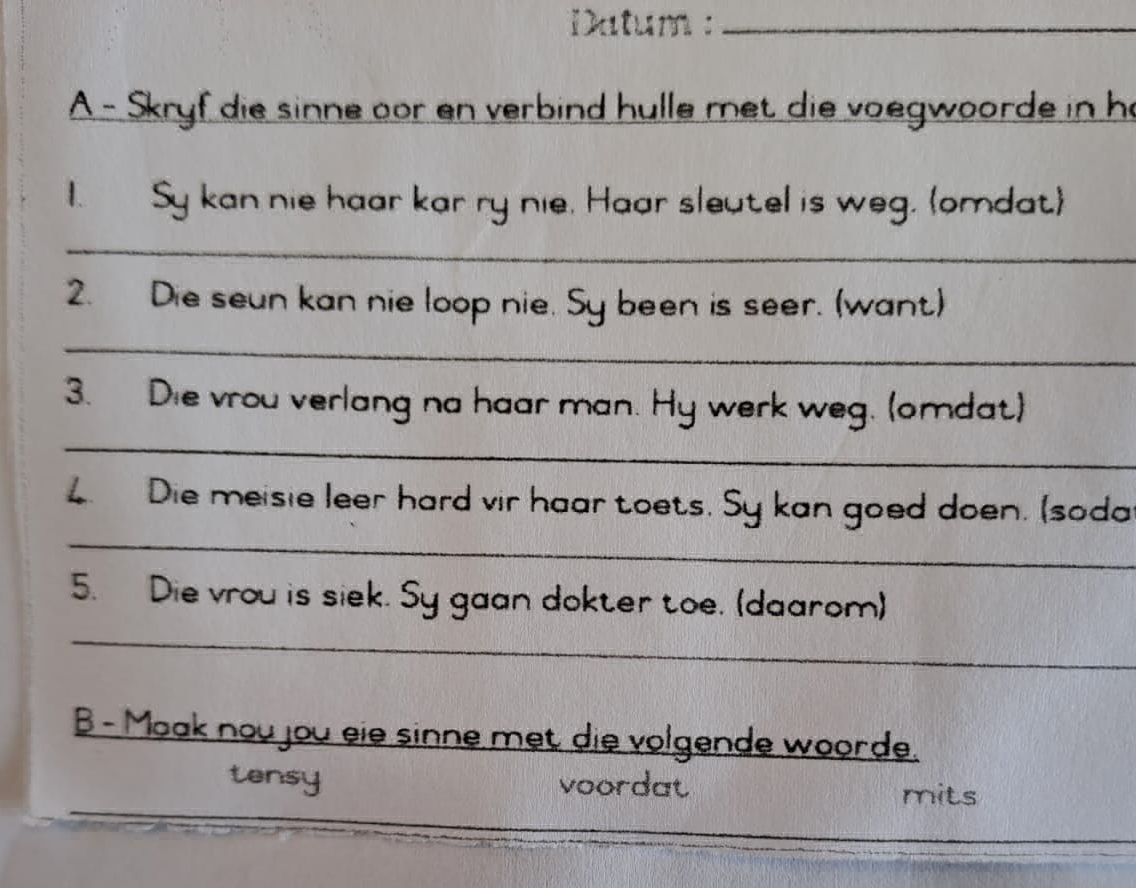 Datum :
A - Skryf die sinne oor en verbind hulle met die voegwoorde in
1. Sy kan nie haar kar ry nie. Haar sleutel is weg. (omdat)
2. Die seun kan nie loop nie. Sy been is seer. (want)
3. Die vrou verlang na haar man. Hy werk weg. (omdat)
4. Die meisie leer hard vir haar toets. Sy kan goed doen.
5. Die vrou is siek. Sy gaan dokter toe. (daarom)
B - Maak nou jou eie sinne met die volgende woorde.
tensy voordat mits